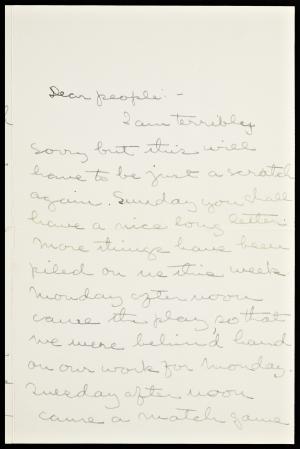 Dear people: -
I am terribly
sorry but this will
have to be just a scratch
again. Sunday you shall
have a nice long letter.
More things have been
piled on us this week
Monday after noon
came the play, so that
we were behind hand
on our work for Monday.
Tuesday after noon
came a match game